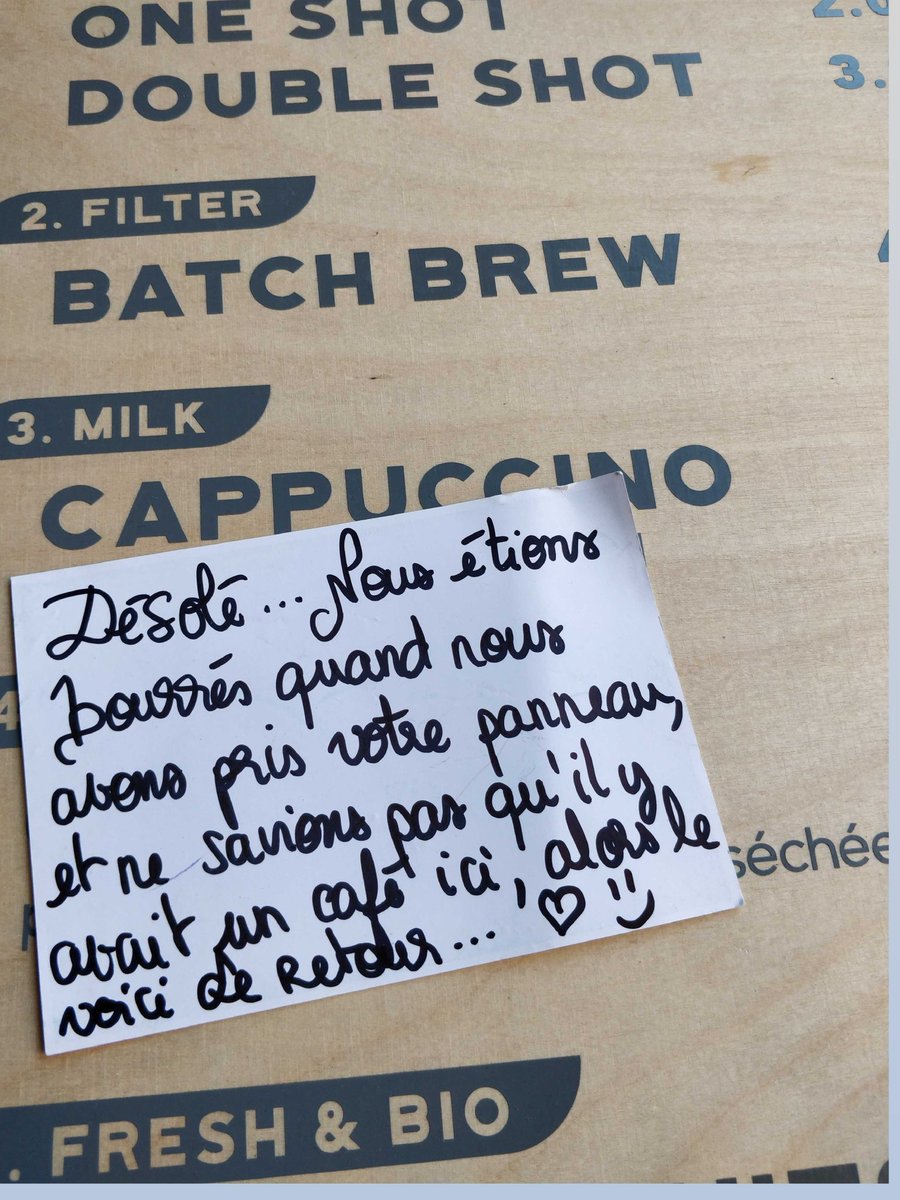 ONE SHOT
DOUBLE SHOT 3.
2. FILTER
BATCH BREW
3. MILK
CAPPUCCINO
Désolé... Nous étions
bourrés quand nous
avons pris votre panneau,
et ne savions pas qu'il y
avait un café ici, alors le
voici de retour... ♡ :)
4
séchée
FRESH & BIO